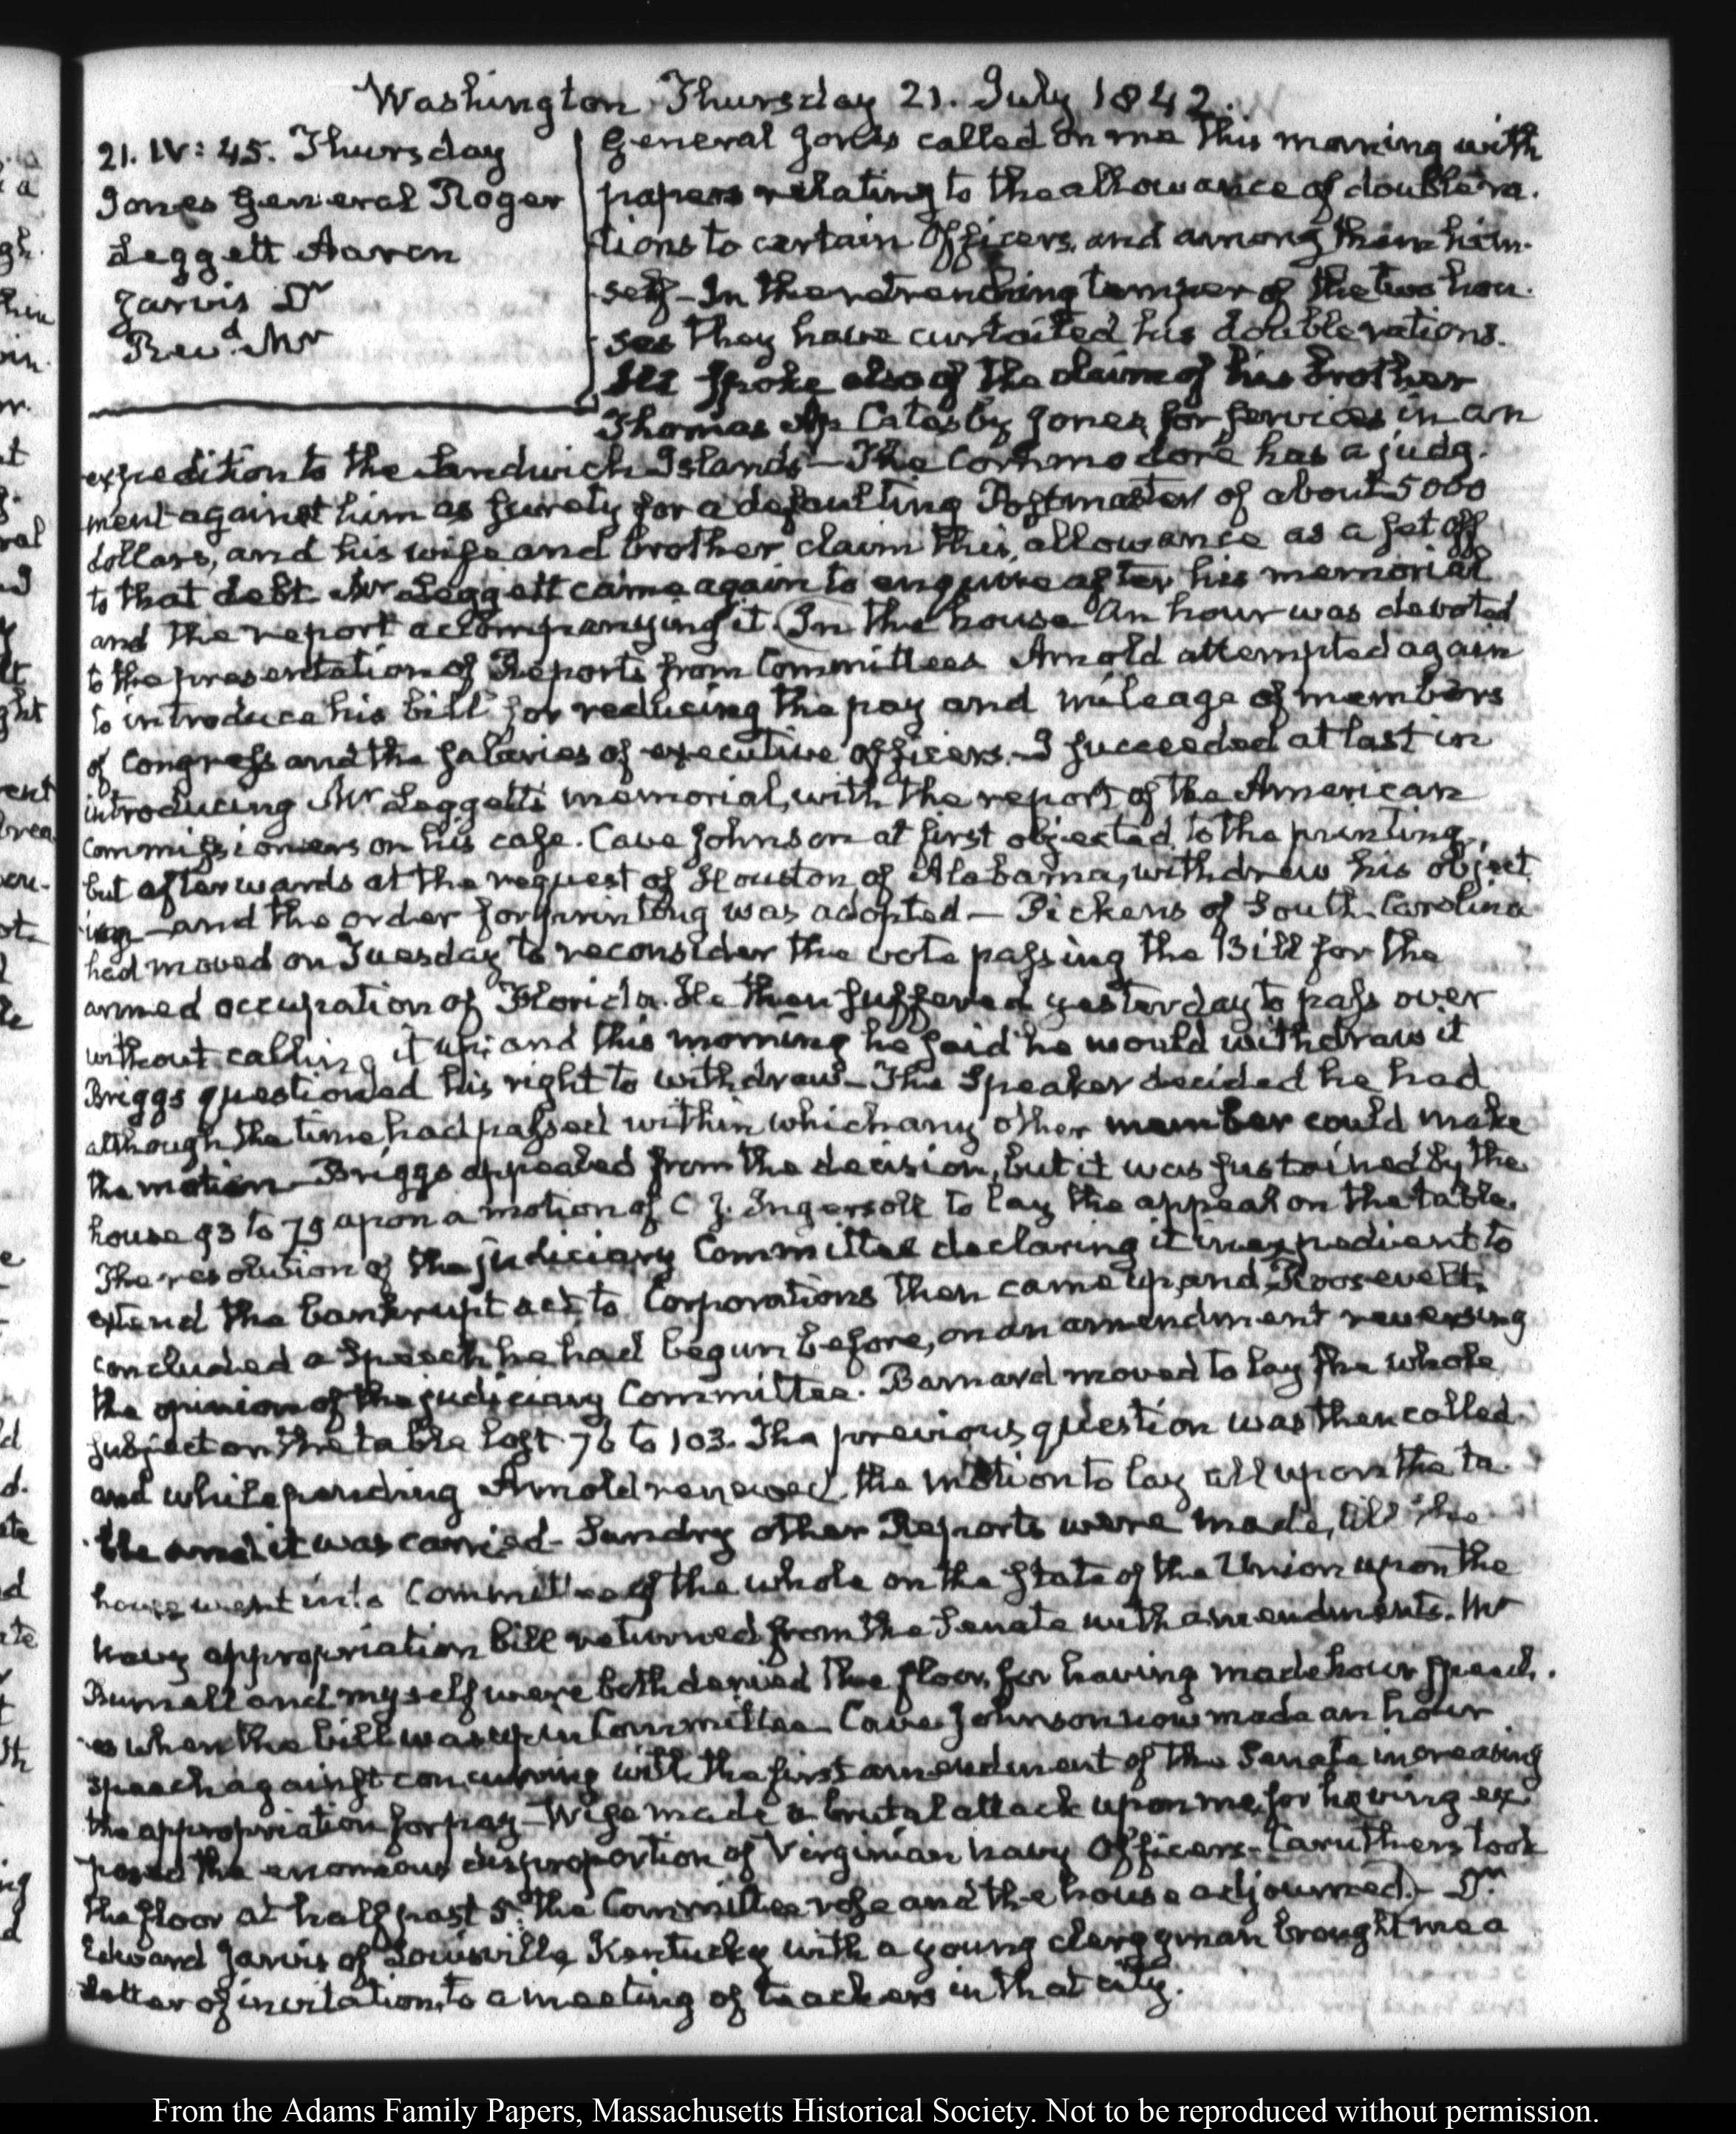 Washington Thursday 21. July 1842.
21. IV: 45. Thursday
Jones General Roger
Leggett Aaron
Jarvis Dr
Revd. Mr
General Jones called on me this morning with
papers relating to the allowance of double ra-
tions to certain Officers, and among them him-
self – In the retrenching temper of the two hou-
ses they have curtailed his double rations.
He spoke also of the claim of his brother
Thomas Ap Catesby Jones, for services in an
expedition to the Sandwich Islands – The Commodore has a judg-
ment against him as surety for a defaulting Postmaster of about 5000
dollars, and his wife and brother claim this allowance as a set off
to that debt. Mr Leggett came again to enquire after his memorial
and the report accompanying it. (In the house an hour was devoted
to the presentation of Reports from Committees Arnold attempted again
to introduce his bill for reducing the pay and mileage of members
of Congress and the salaries of executive officers. – I succeeded at last in
introducing Mr Leggetts memorial, with the report of the American
Commissioners on his case. Cave Johnson at first objected to the printing,
but afterwards at the request of Houston of Alabama, withdrew his object
ion – and the order for printing was adopted – Pickens of South-Carolina
had moved on Tuesday to reconsider the vote passing the Bill for the
armed occupation of Florida. He then suffered yesterday to pass over
without calling it up; and this morning he said he would withdraw it
Briggs questioned his right to withdraw – The Speaker decided he had
although the time had passed within which any other member could make
the motion – Briggs appealed from the decision, but it was sustained by the
house 93 to 79 upon a motion of C. J. Ingersoll to lay the appeal on the table.
The resolution of the judiciary Committee declaring it inexpedient to
extend the bankrupt act to Corporations then came up, and Roosevelt
concluded a Speech he had begun before, on an amendment reversing
the opinion of the judiciary Committee. Barnard moved to lay the whole
subject on the table lost 76 to 103. The previous question was then called
and while pending Arnold renewed the motion to lay all upon the ta-
ble and it was carried – Sundry other Reports were made, till the
house went into Committee of the whole on the state of the Union upon the
navy appropriation bill returned from the Senate with amendments. Mr
Burnell and myself were both denied the floor, for having made hour speech-
es when the bill was up in Committee – Cave Johnson now made an hour
speech against concurring with the first amendment of the Senate increasing
the appropriation for pay – Wise made a brutal attack upon me, for having ex-
posed the enormous disproportion of Virginian navy Officers – Caruthers took
the floor at half past 5. the Committee rose and the house adjourned.) – Dr.
Edward Jarvis of Louisville Kentucky with a young clergyman brought me a
letter of invitation, to a meeting of teachers in that city.
From the Adams Family Papers, Massachusetts Historical Society. Not to be reproduced without permission.